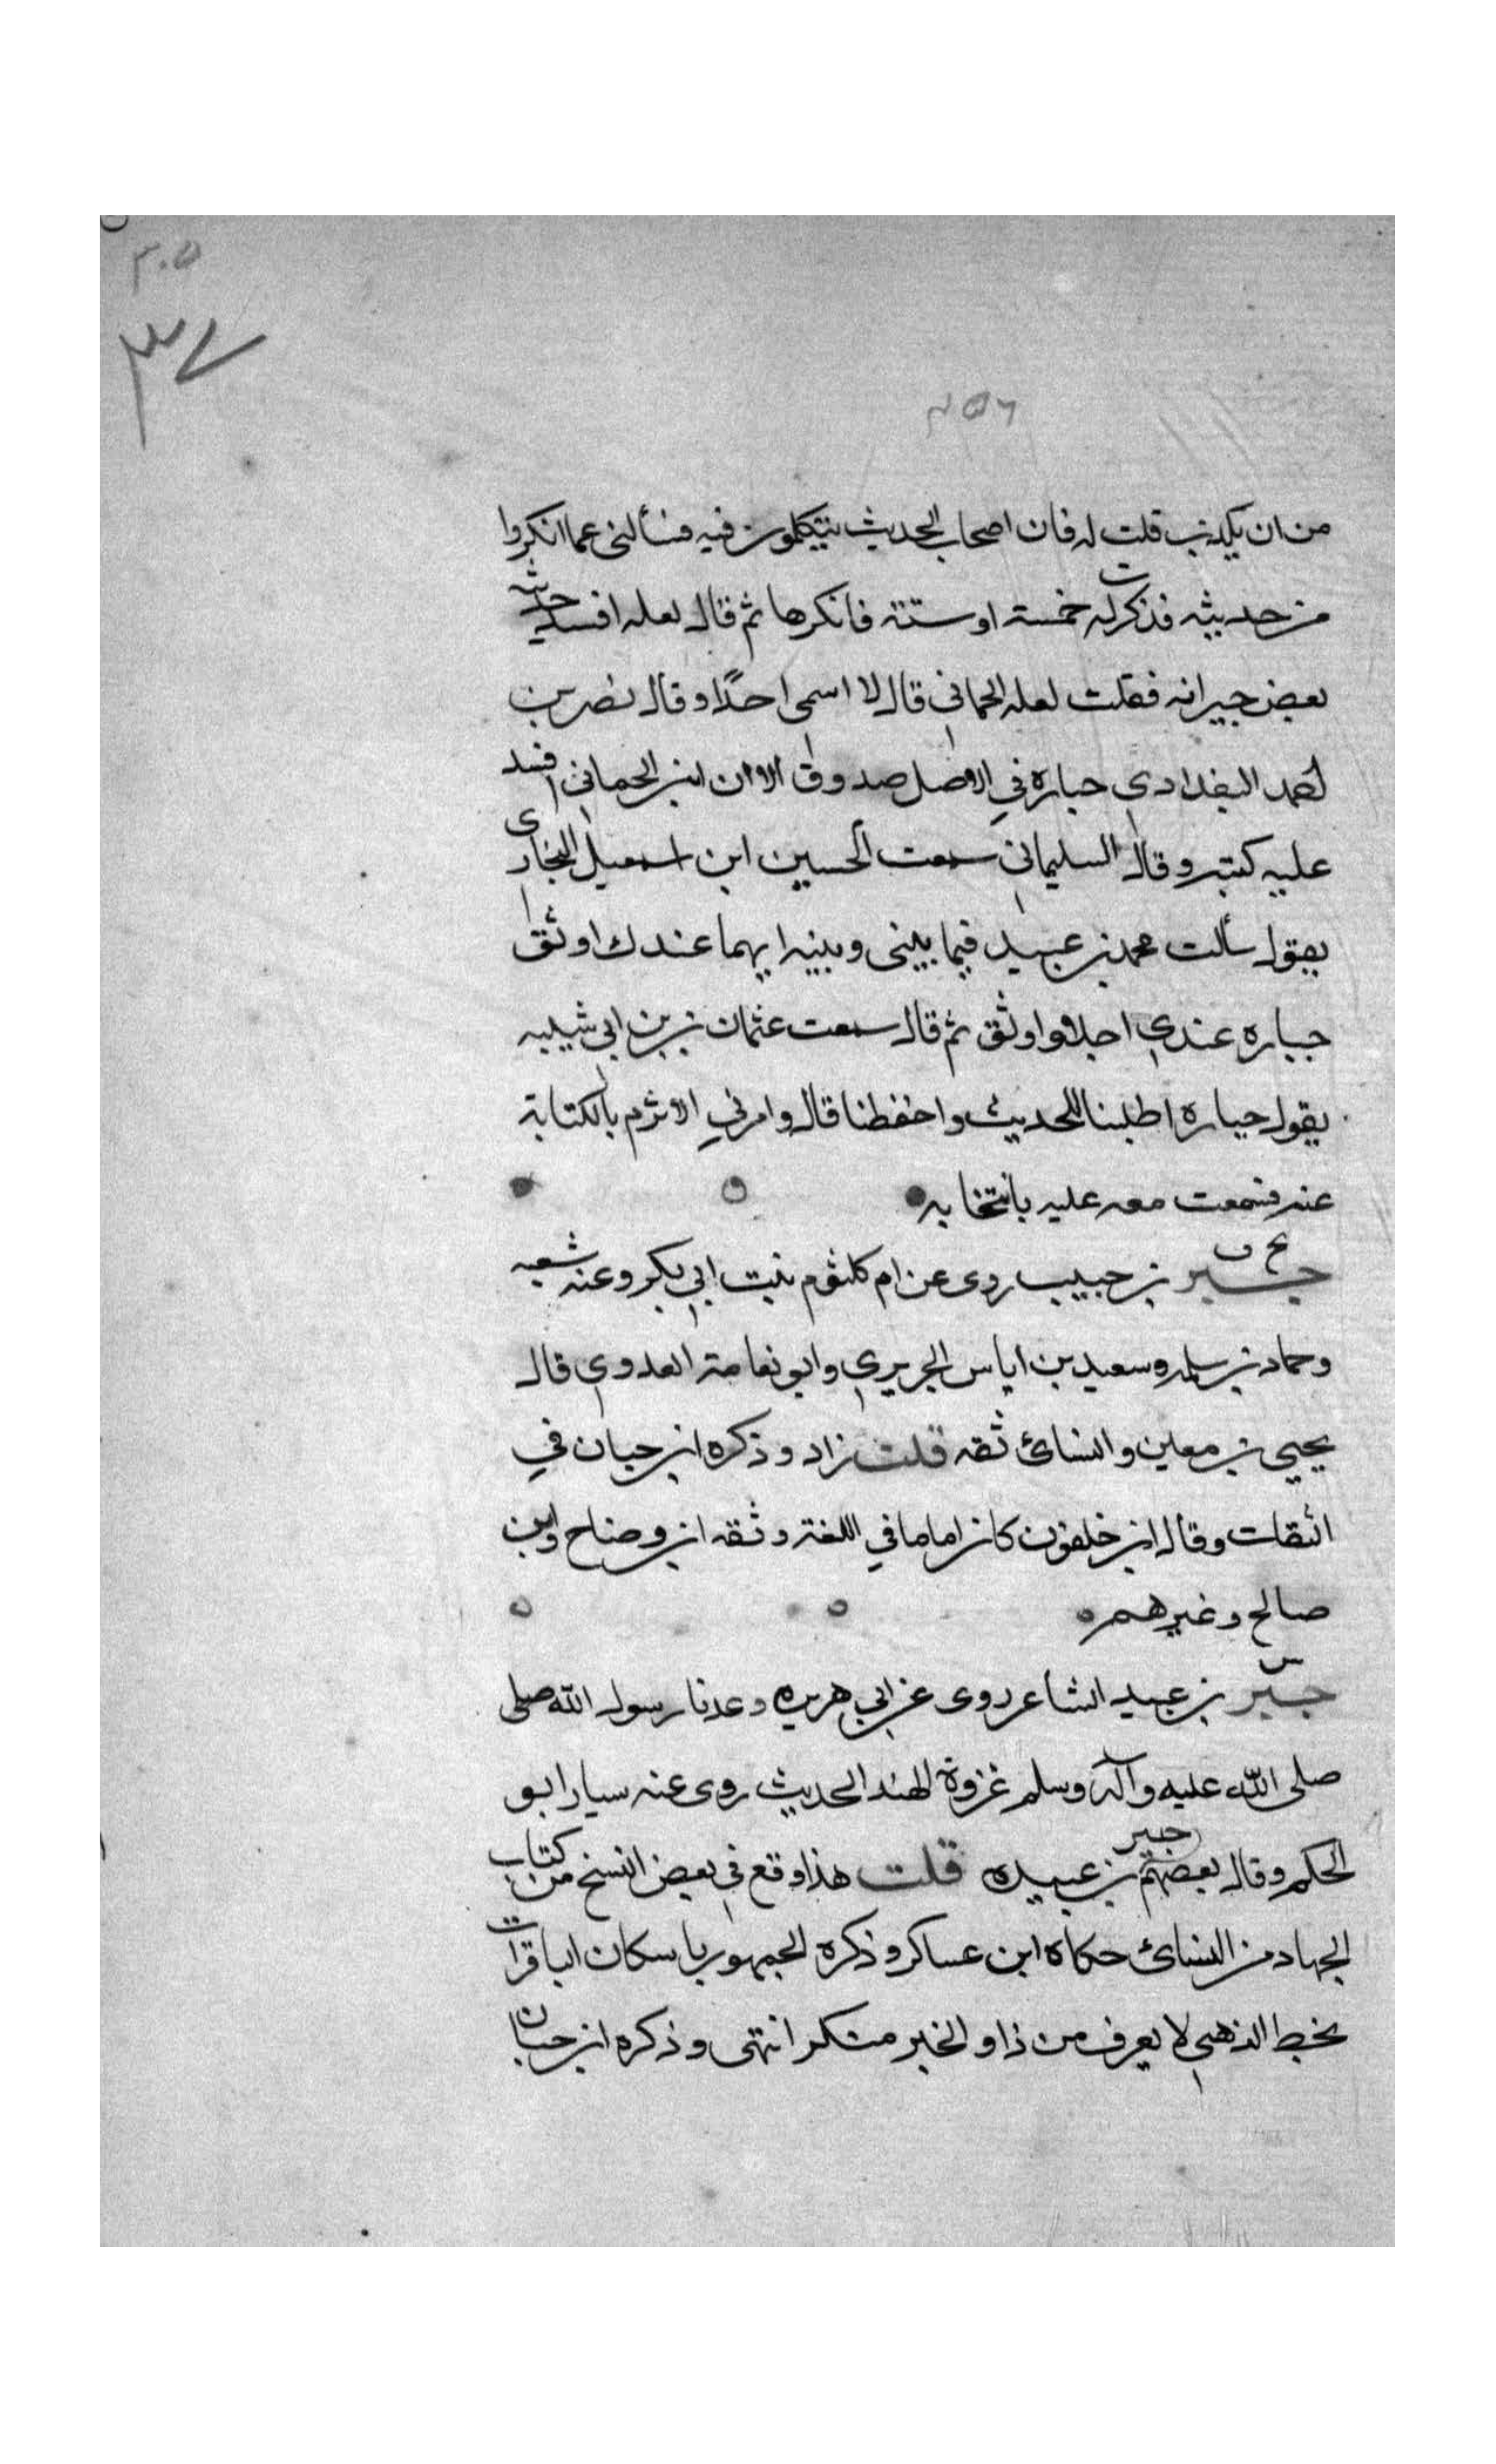 ٣٠٥
٣٧
٢٥٦
من ان يكذب قلت له فان اصحاب الحديث يتكلمون فيه فسألنى عما انكروا
من حديثه فذكرت له خمسة او ستة فانكرها ثم قال لعله افسد حديثه
بعض جيرانه فقلت لعله الحمانى قال لا اسمى احدًا وقال نصر بن
احمد البغدادي جباره في الاصل صدوق الا ان ابن الحماني افسد
عليه كتبه وقال السليمانى سمعت الحسين ابن اسمعيل البخارى
يقول سألت محمد بن عبيد فيما بينى وبينه ايهما عندك اوثق
جباره عندي احلا واوثق ثم قال سمعت عثمان بن بن ابى شيبه
يقول جباره اطلبنا للحديث واحفظنا قال وامرني الاثرم بالكتابة
عنه فسمعت معه عليه بانتخابه
بخ ق
جبر بن حبيب روى عن ام كلثوم بنت ابي بكر وعنه شعبه
وحماد بن سلمه وسعيد بن اياس الجريري وابو نعامة العدوي قال
يحيي بن معين والنسائ ثقه قلت زاد وذكره ابن حبان في
الثقات وقال ابن خلفون كان اماما في اللغة وثقه ابن وضاح وابن
صالح وغيرهم
س
جبر بن عبيد الشاعر روى عن ابي هريره وعدنا رسول الله صلى
صلى الله عليه وآله وسلم غزوة الهند الحديث روى عنه سيار ابو
الحكم وقال بعضهم جبير بن عبيده قلت هذا وقع في بعض النسخ من كتاب
الجهاد من النسائ حكاه ابن عساكر وذكره الجمهور باسكان البا قرات
بخط الذهبي لا يعرف من ذا والخبر منكر انتهى وذكره ابن حبان